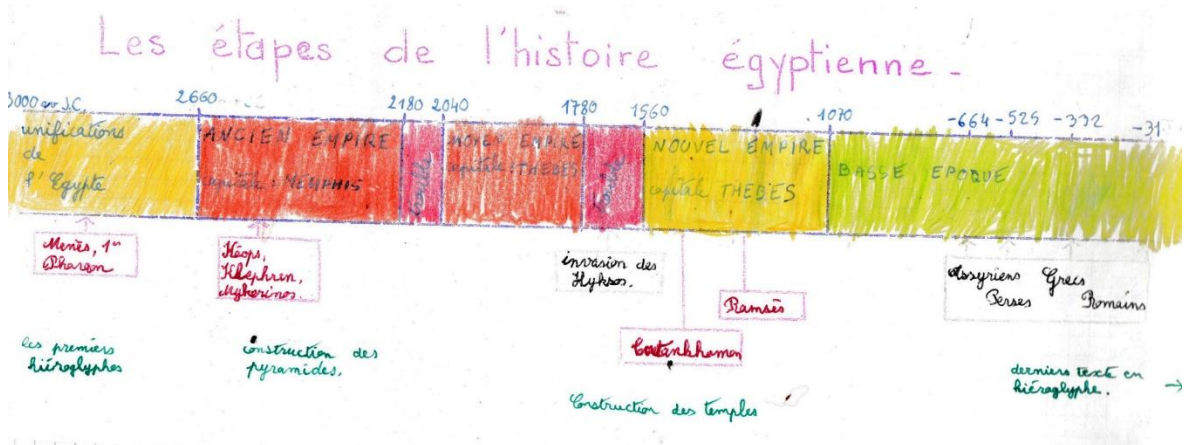 Les étapes de l'histoire égyptienne -
3000 av J.C.
2660
2180
2040
1780
1560
1070
-664
-525
-332
-31
unifications
de
l'Egypte
ANCIEN EMPIRE
capitale : MEMPHIS
MOYEN EMPIRE
capitale : THEBES
NOUVEL EMPIRE
capitale THEBES
BASSE EPOQUE
Menès, 1er
Pharaon
Kéops,
Khephren,
Mykerinos.
invasion des
Hyksos.
Ramsès
Toutankhamon
Assyriens Grecs
Perses Romains
les premiers
hiéroglyphes
construction des
pyramides.
Construction des temples
derniers texte en
hiéroglyphe. →